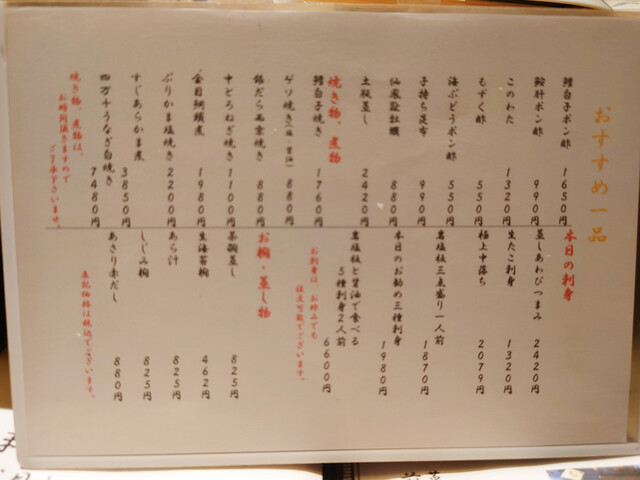 おすすめ一品
鱈白子ポン酢 1650円
鮟肝ポン酢 990円
このわた 1320円
もずく酢 550円
海ぶどうポン酢 550円
子持ち昆布 990円
仙鳳趾牡蠣 880円
土瓶蒸し 2420円
焼き物、煮物
鱈白子焼き 1760円
ゲソ焼き(塩・醤油) 880円
銀だら西京焼き 880円
中とろねぎ焼き 1100円
金目鯛頭煮 1980円
ぶりかま塩焼き 2200円
すじあらかま煮 3850円
四万十うなぎ白焼き 7480円
焼き物、煮物は、
お時間頂きますので
ご了承下さいませ。
本日の刺身
蒸しあわびつまみ 2420円
生たこ刺身 1320円
極上中落ち 2079円
岩塩板三点盛り一人前 1870円
本日のお勧め三種刺身 1980円
岩塩板と醤油で食べる
5種刺身2人前 6600円
お刺身は、お好みでも
注文可能でございます。
お椀・蒸し物
茶碗蒸し 825円
生海苔椀 462円
あら汁 825円
しじみ椀 825円
あさり赤だし 880円
表記価格は税込でございます。